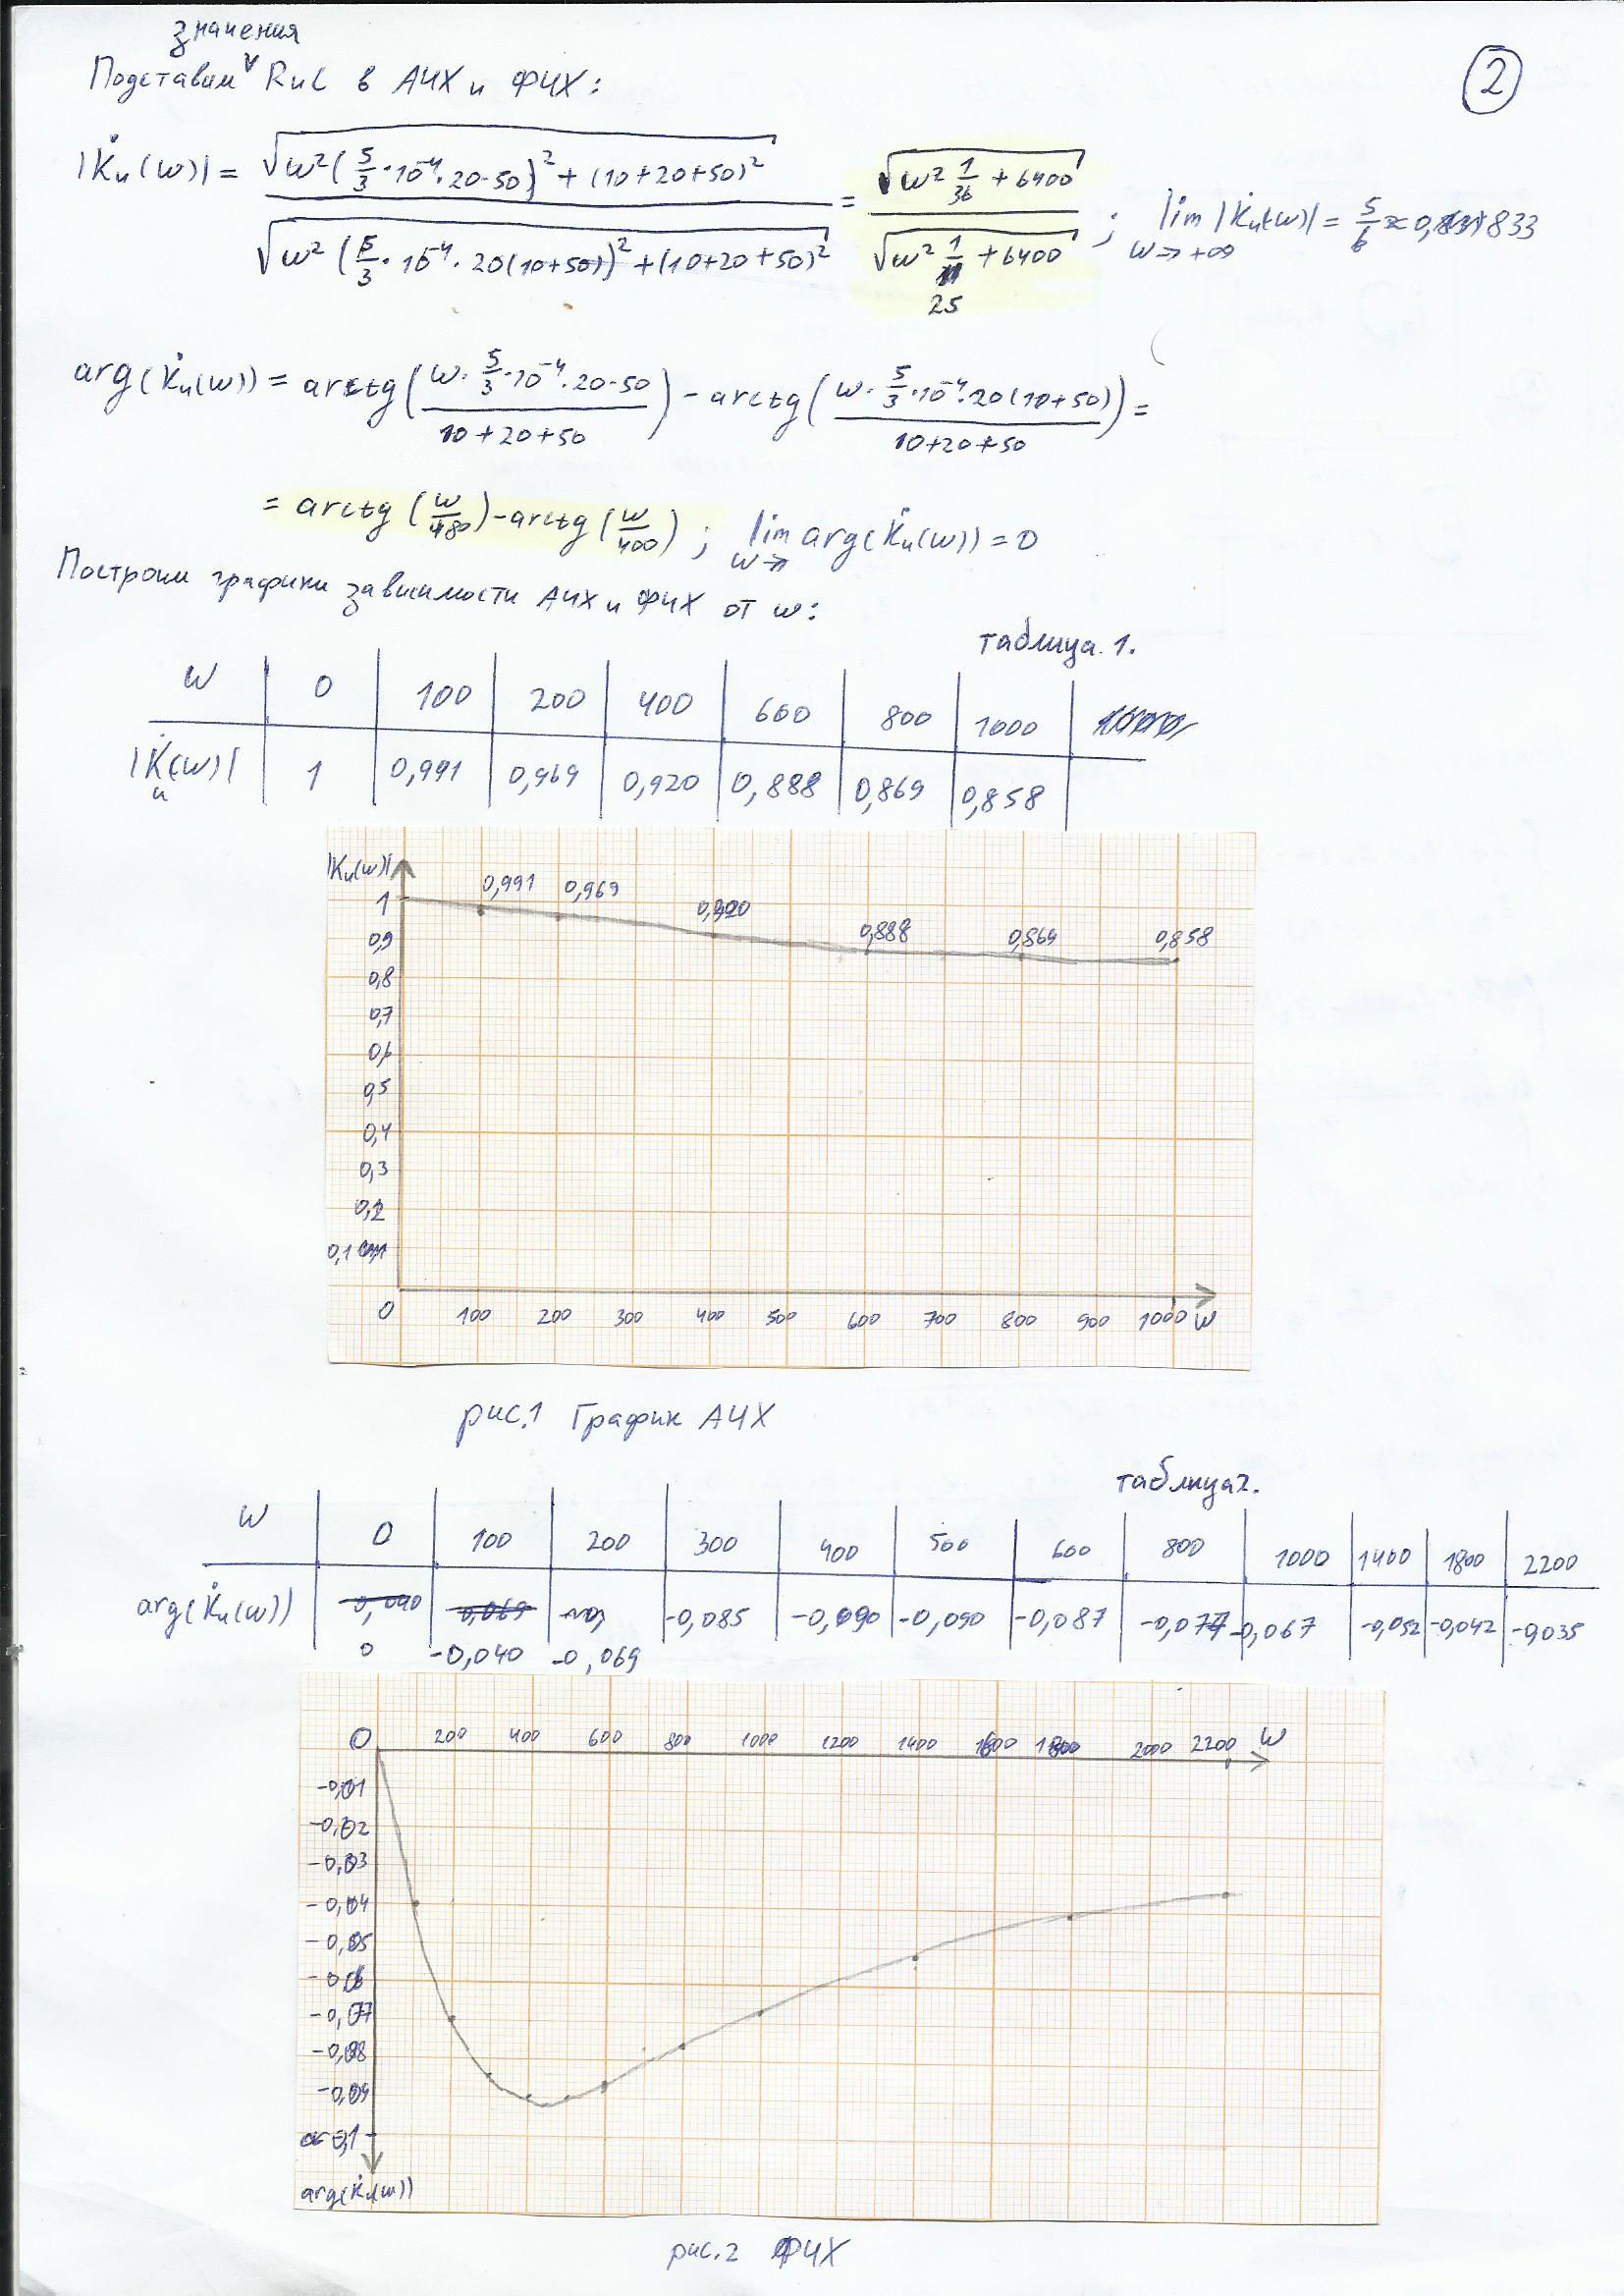 значения
Подставим ˅ R и C в АЧХ и ФЧХ:
2
|K̇u(w)| = √(w²(5/3·10⁻⁴·20·50)² + (10+20+50)²) / √(w²(5/3·10⁻⁴·20(10+50))² + (10+20+50)²) = √(w² 1/36 + 6400) / √(w² 1/25 + 6400) ; lim w→+∞ |K̇u(w)| = 5/6 ≈ 0,833
arg(K̇u(w)) = arctg(w·5/3·10⁻⁴·20·50 / 10+20+50) − arctg(w·5/3·10⁻⁴·20(10+50) / 10+20+50) =
= arctg(w/480) − arctg(w/400) ; lim w→∞ arg(K̇u(w)) = 0
Построим графики зависимости АЧХ и ФЧХ от w:
таблица 1.
w 0 100 200 400 600 800 1000
|K̇u(w)| 1 0,991 0,969 0,920 0,888 0,869 0,858
|Ku(w)|
0,991 0,969 0,920 0,888 0,869 0,858
1
0,9
0,8
0,7
0,6
0,5
0,4
0,3
0,2
0,1
0 100 200 300 400 500 600 700 800 900 1000 w
рис.1 График АЧХ
таблица 2.
w 0 100 200 300 400 500 600 800 1000 1400 1800 2200
arg(K̇u(w)) 0 -0,040 -0,069 -0,085 -0,090 -0,090 -0,087 -0,077 -0,067 -0,052 -0,042 -0,035
0 200 400 600 800 1000 1200 1400 1600 1800 2000 2200 w
-0,01
-0,02
-0,03
-0,04
-0,05
-0,06
-0,07
-0,08
-0,09
-0,1
arg(K̇u(w))
рис.2 ФЧХ